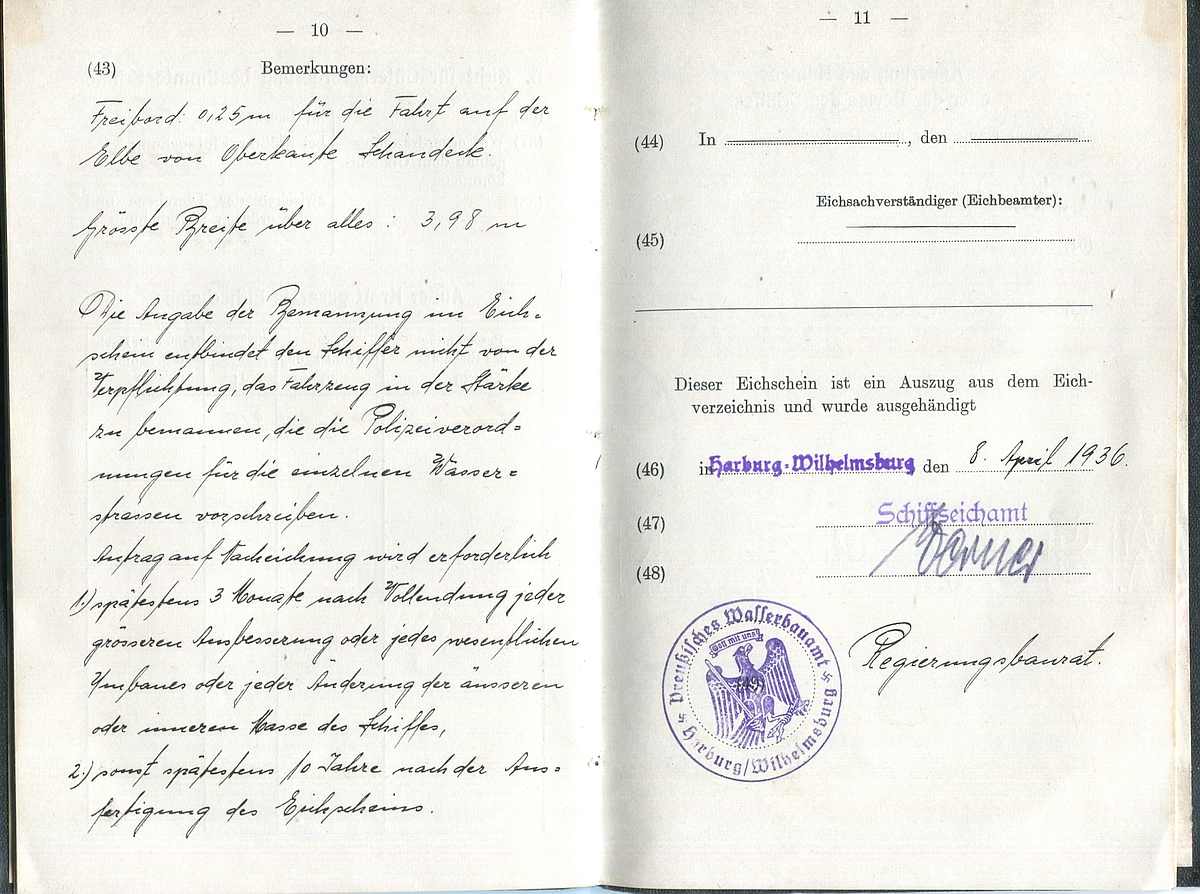 — 10 —
(43) Bemerkungen:
Freibord: 0,25 m für die Fahrt auf der
Elbe von Oberkante Schandeck.
Grösste Breite über alles : 3,98 m
Die Angabe der Bemannung im Eich-
schein entbindet den Schiffer nicht von der
Verpflichtung, das Fahrzeug in der Stärke
zu bemannen, die die Polizeiverord-
nungen für die einzelnen Wasser-
strassen vorschreiben.
Antrag auf Nacheichung wird erforderlich
1.) spätestens 3 Monate nach Vollendung jeder
grösseren Ausbesserung oder jedes wesentlichen
Umbaues oder jeder Änderung der äusseren
oder inneren Masse des Schiffes,
2.) sonst spätestens 10 Jahre nach der Aus-
fertigung des Eichscheins.
— 11 —
(44) In , den
Eichsachverständiger (Eichbeamter):
(45)
Dieser Eichschein ist ein Auszug aus dem Eich-
verzeichnis und wurde ausgehändigt
(46) in Harburg-Wilhelmsburg den 8. April 1936.
(47) Schiffseichamt
(48)
Regierungsbaurat.
Preußisches Wasserbauamt
Gott mit uns
(49)
Harburg/Wilhelmsburg